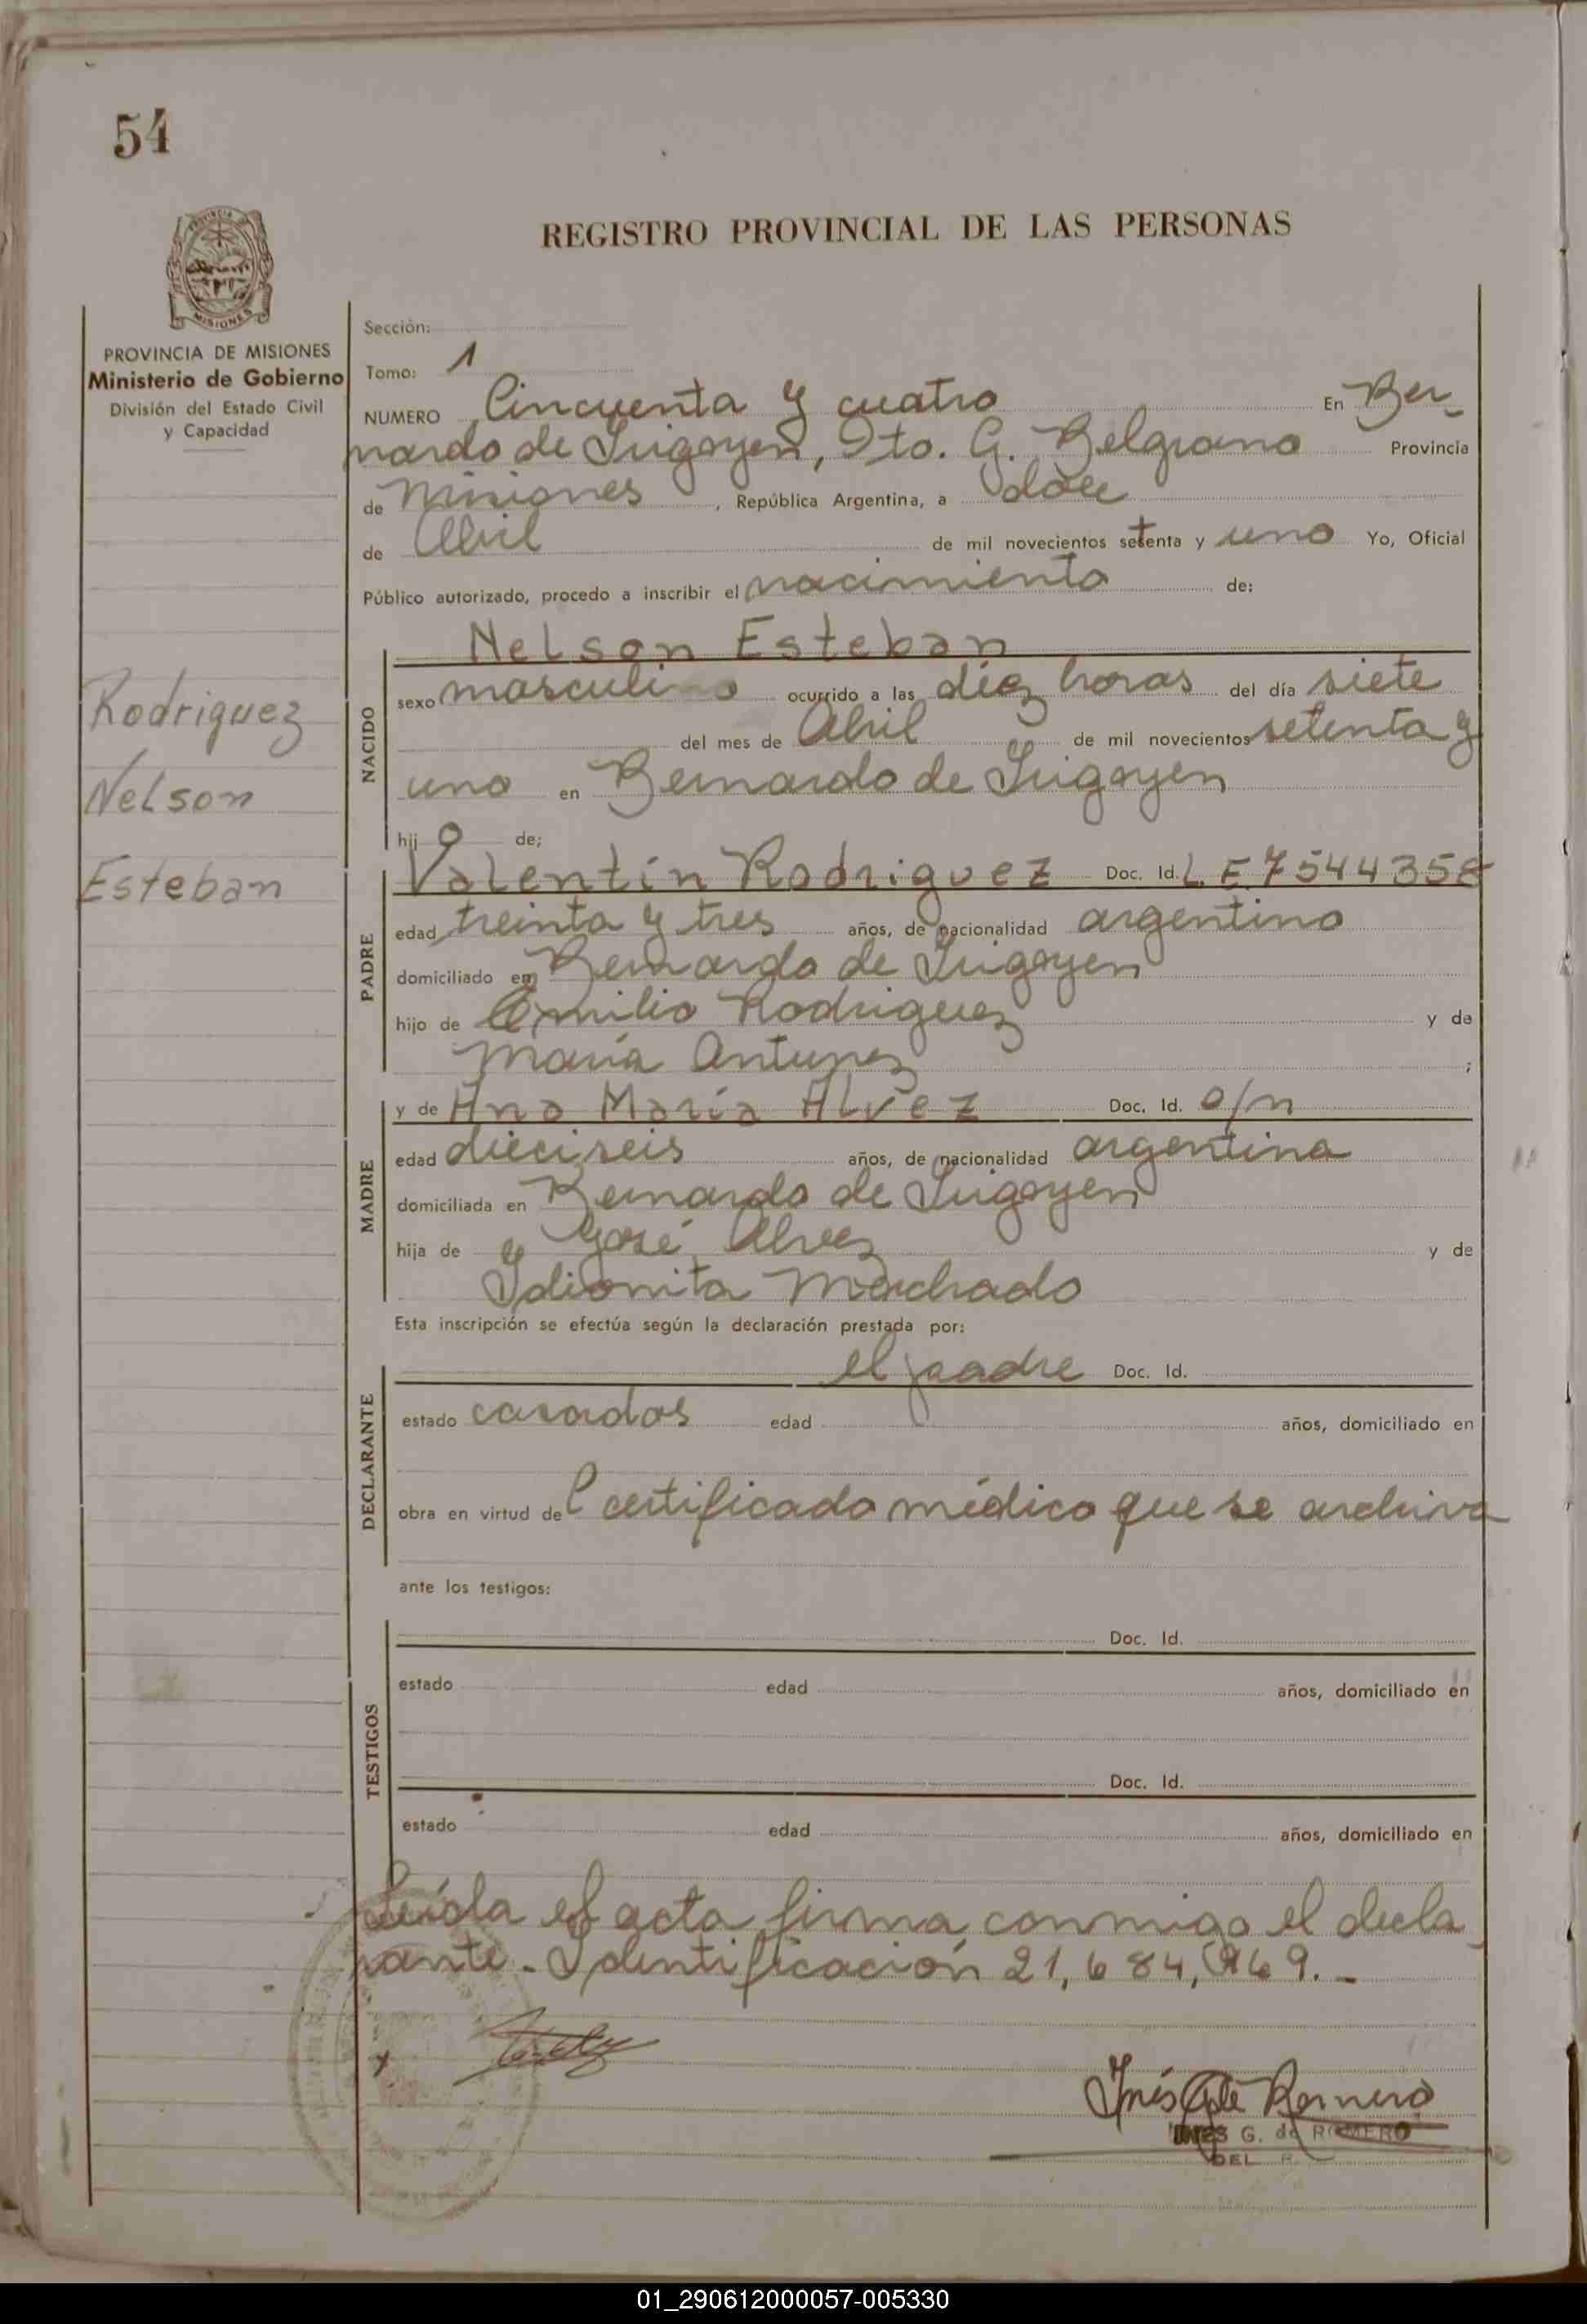 54
REGISTRO PROVINCIAL DE LAS PERSONAS
PROVINCIA DE MISIONES
Ministerio de Gobierno
División del Estado Civil
y Capacidad
Rodriguez
Nelson
Esteban
Sección:
Tomo: 1
NUMERO Cincuenta y cuatro En Ber-
nardo de Irigoyen, Dto. G. Belgrano Provincia
de Misiones, República Argentina, a doce
de Abril de mil novecientos setenta y uno Yo, Oficial
Público autorizado, procedo a inscribir el nacimiento de:
NACIDO
Nelson Esteban
sexo masculino ocurrido a las diez horas del día siete
del mes de Abril de mil novecientos setenta y
uno en Bernardo de Irigoyen
hijo de;
PADRE
Valentín Rodriguez Doc. Id. L.E. 7544358
edad treinta y tres años, de nacionalidad argentino
domiciliado en Bernardo de Irigoyen
hijo de Emilio Rodriguez y de
María Antunez ;
MADRE
y de Ana María Alvez Doc. Id. o/n
edad dieciseis años, de nacionalidad argentina
domiciliada en Bernardo de Irigoyen
hija de José Alvez y de
Machado
Esta inscripción se efectúa según la declaración prestada por:
DECLARANTE
el padre Doc. Id.
estado casados edad años, domiciliado en
obra en virtud del certificado médico que se archiva
ante los testigos:
TESTIGOS
Doc. Id.
estado edad años, domiciliado en
Doc. Id.
estado edad años, domiciliado en
Leída el acta firma conmigo el decla
rante. Identificación 21,684,
Inés G de Romero
INES G. de ROMERO
DEL
01_290612000057-005330